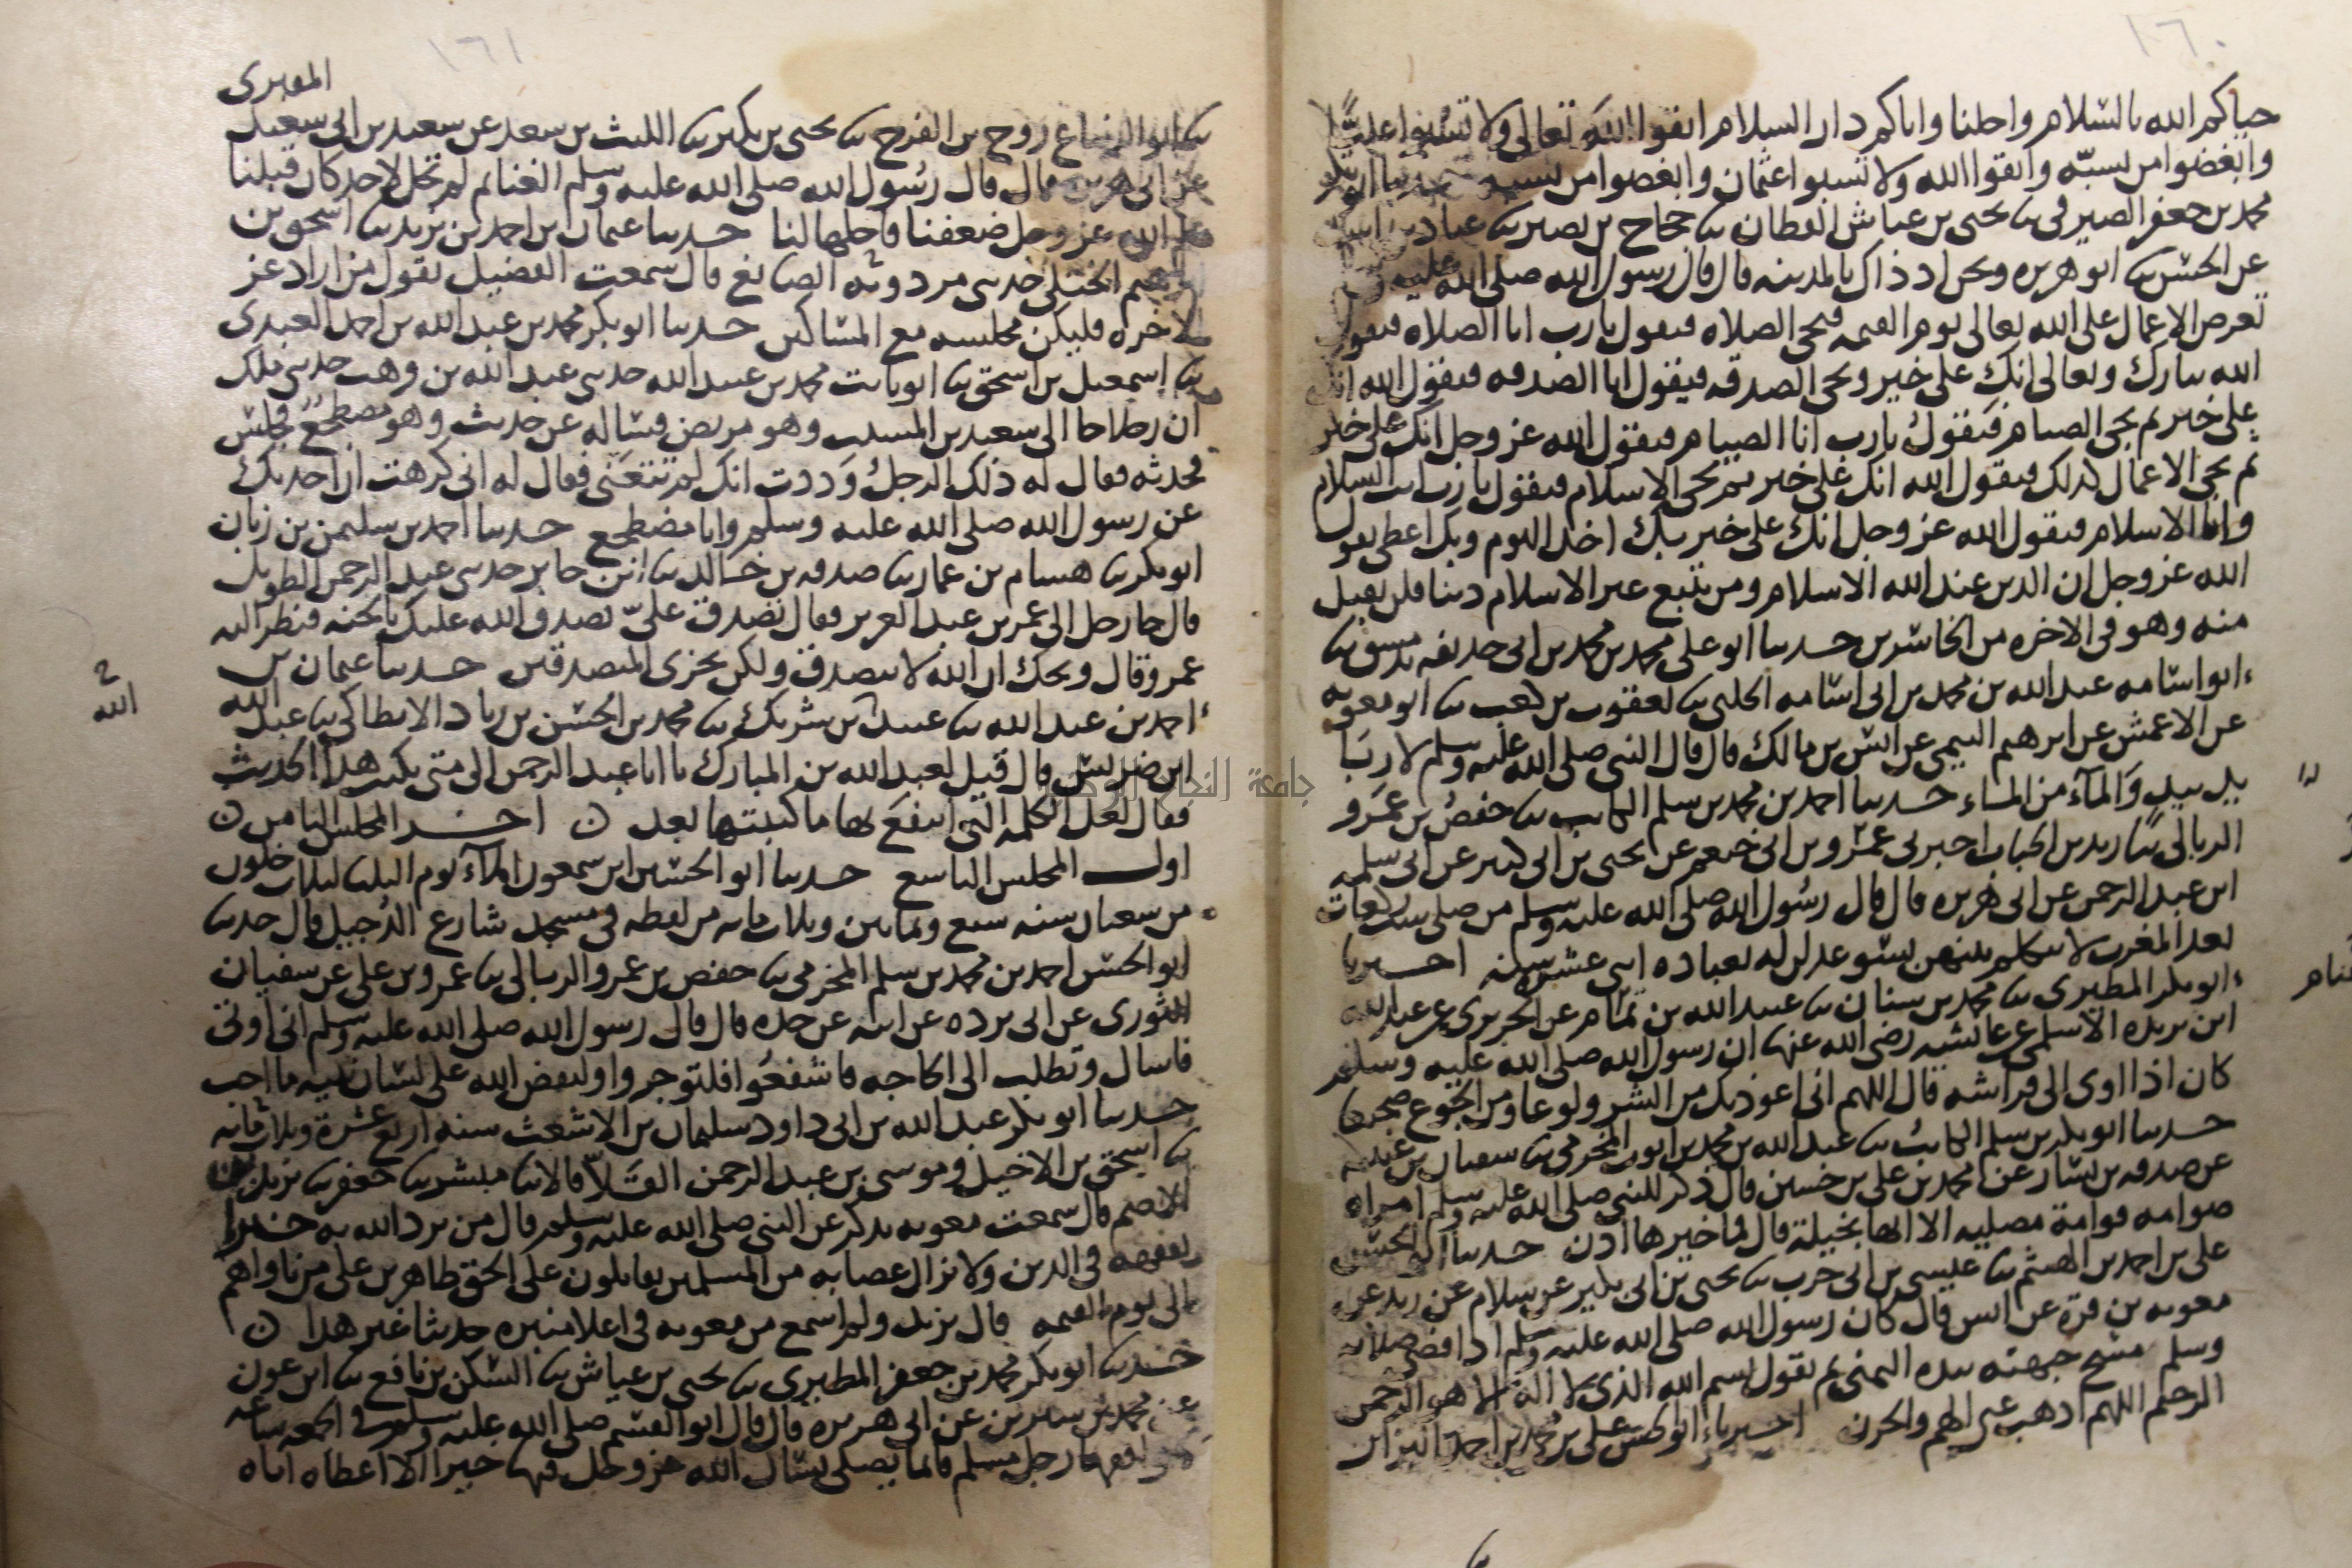 ١٦٠
حياكم الله بالسلام واحلنا واياكم دار السلام اتقوا الله تعالى ولا تسبوا عليا
وابغضوا من يسبه واتقوا الله ولا تسبوا عثمان وابغضوا من يسبه حدثنا ابو بكر
محمد بن جعفر الصيرفي ثنا يحيى بن عياش القطان ثنا حجاج بن نصير ثنا عباد بن
عن الحسن ثنا ابو هريره ونحن اذ ذاك بالمدينه قال قال رسول الله صلى الله عليه
تعرض الاعمال على الله تعالى يوم القيمه فتجى الصلاه فيقول يا رب انا الصلاه فيقول
الله تبارك وتعالى انك على خير وتجى الصدقه فيقول انا الصدقه فيقول الله انك
على خير ثم يجى الصيام فيقول يا رب انا الصيام فيقول الله عز وجل انك على خير
ثم يجى الاعمال كذلك فيقول الله انك على خير ثم يجى الاسلام فيقول يا رب انت السلام
وانا الاسلام فيقول الله عز وجل انك على خير بك اخذ اليوم وبك اعطى يقول
الله عز وجل ان الدين عند الله الاسلام ومن يتبع غير الاسلام دينا فلن يقبل
منه وهو في الاخره من الخاسرين حدثنا ابو على محمد بن محمد بن ابى حذيفه بدمشق ثنا
ابو اسامه عبد الله بن محمد بن ابى اسامه الحلبى ثنا يعقوب بن كعب ثنا ابو معويه
عن الاعمش عن ابرهيم التيمى عن انس بن مالك قال قال النبى صلى الله عليه وسلم لا ربا
يد بيد والماء من الماء حدثنا احمد بن محمد بن سلم الكاتب ثنا حفص بن عمرو
الربالى ثنا زيد بن الحباب اخبرنى عمرو بن ابى خثعم عن يحيى بن ابى كثير عن ابى سلمه
ابن عبد الرحمن عن ابى هريره قال قال رسول الله صلى الله عليه وسلم من صلى ست ركعات
بعد المغرب لا يتكلم بينهن بسو عدلن له بعباده اثنى عشره سنه اخبرنا
ابو بكر المطيرى ثنا محمد بن سنان ثنا عبيد الله بن تمام عن الجريرى عن عبد الله
ابن بريده الاسلمى عن عايشه رضى الله عنها ان رسول الله صلى الله عليه وسلم
كان اذا اوى الى فراشه قال اللهم انى اعوذ بك من الشر ولوعا ومن الجوع ضجيعا
حدثنا ابو بكر بن سلم الكاتب ثنا عبد الله بن محمد بن ايوب المخرمى ثنا سفيان بن عيينه
عن صدقه بن يسار عن محمد بن على بن حسين قال ذكر للنبى صلى الله عليه وسلم امراه
صوامه قوامة مصليه الا انها بخيلة قال فما خيرها اذن حدثنا ابو الحسن
على بن احمد بن الهيثم ثنا عيسى بن ابى حرب ثنا يحيى بن ابى بكير عن سلام عن زيد عن
معويه بن قرة عن انس قال كان رسول الله صلى الله عليه وسلم اذا قضى صلاته
وسلم مسح جبهته بيده اليمنى ثم يقول بسم الله الذى لا اله الا هو الرحمن
الرحيم اللهم اذهب عنى الهم والحزن اخبرنا ابو الحسن على بن محمد بن احمد البزاز
١٦١
المقبرى
ثنا ابو الزنباع روح بن الفرج ثنا يحيى بن بكير ثنا الليث بن سعد عن سعيد بن ابى سعيد
عن ابى هريره قال قال رسول الله صلى الله عليه وسلم الغنائم لم تحل لاحد كان قبلنا
علم الله عز وجل ضعفنا فاحلها لنا حدثنا عثمان بن احمد بن يزيد ثنا اسحق بن
ابرهيم الختلى حدثنى مردويه الصايغ قال سمعت الفضيل يقول من اراد عز
الاخره فليكن مجلسه مع المساكين حدثنا ابو بكر محمد بن عبد الله بن احمد العبدى
ثنا اسمعيل بن اسحق ثنا ابو ثابت محمد بن عبيد الله حدثنى عبد الله بن وهب حدثنى ملك
ان رجلا جا الى سعيد بن المسيب وهو مريض فساله عن حديث وهو مضطجع فجلس
فحدثه فقال له ذلك الرجل وددت انك لم تتعنى فقال له انى كرهت ان احدثك
عن رسول الله صلى الله عليه وسلم وانا مضطجع حدثنا احمد بن سليمن بن زبان
ابو بكر ثنا هشام بن عمار ثنا صدقه بن خالد ثنا ابن جابر حدثنى عبد الرحمن الطويل
قال جا رجل الى عمر بن عبد العزيز فقال تصدق علي تصدق الله عليك بالجنه فنظر اليه
عمر وقال ويحك ان الله لا يتصدق ولكن يجزى المتصدقين حدثنا عثمان بن
احمد بن عبد الله ثنا عبيد بن شريك ثنا محمد بن الحسن بن زياد الانطاكى ثنا عبد الله
الله
ابن ضريس قال قيل لعبد الله بن المبارك يا ابا عبد الرحمن الى متى يكتب هذا الحديث
فقال لعل الكلمه التى انتفع بها ما كتبتها بعد ن اخر المجلس الثامن ن
اول المجلس التاسع حدثنا ابو الحسين ابن سمعون املاء يوم الثلثا لثلاث خلون
من شعبان سنه سبع وثمانين وثلاث مايه من لفظه فى مسجد شارع الدجيل قال حدثنا
ابو الحسن احمد بن محمد بن سلم المخرمى ثنا حفص بن عمرو الربالى ثنا عمرو بن على عن سفيان
الثورى عن ابى برده عن ابيه عن جده قال قال رسول الله صلى الله عليه وسلم انى اوتى
فاسال وتطلب الى الحاجه فاشفعوا فلتوجروا وليقض الله على لسان نبيه ما احب
حدثنا ابو بكر عبد الله بن ابى داود سليمان بن الاشعث سنه اربع عشرة وثلاث مايه
ثنا اسحق بن الاخيل وموسى بن عبد الرحمن القلا قالا ثنا مبشر ثنا جعفر ثنا يزيد بن
الاصم قال سمعت معويه يذكر عن النبى صلى الله عليه وسلم قال من يرد الله به خيرا
يفقهه فى الدين ولا تزال عصابه من المسلمين يقاتلون على الحق ظاهرين على من ناواهم
الى يوم القيمه قال يزيد ولم اسمع من معويه فى اعلا منبره حديثا غير هذا ن
حدثنا ابو بكر محمد بن جعفر المطيرى ثنا يحيى بن عياش ثنا السكن بن نافع ثنا ابن عون
عن محمد بن سيرين عن ابى هريره قال قال ابو القسم صلى الله عليه وسلم فى الجمعه ساعه
يوافقها رجل مسلم قائما يصلى يسال الله عز وجل فيها خيرا الا اعطاه اياه
جامعة النجاح الوطنية